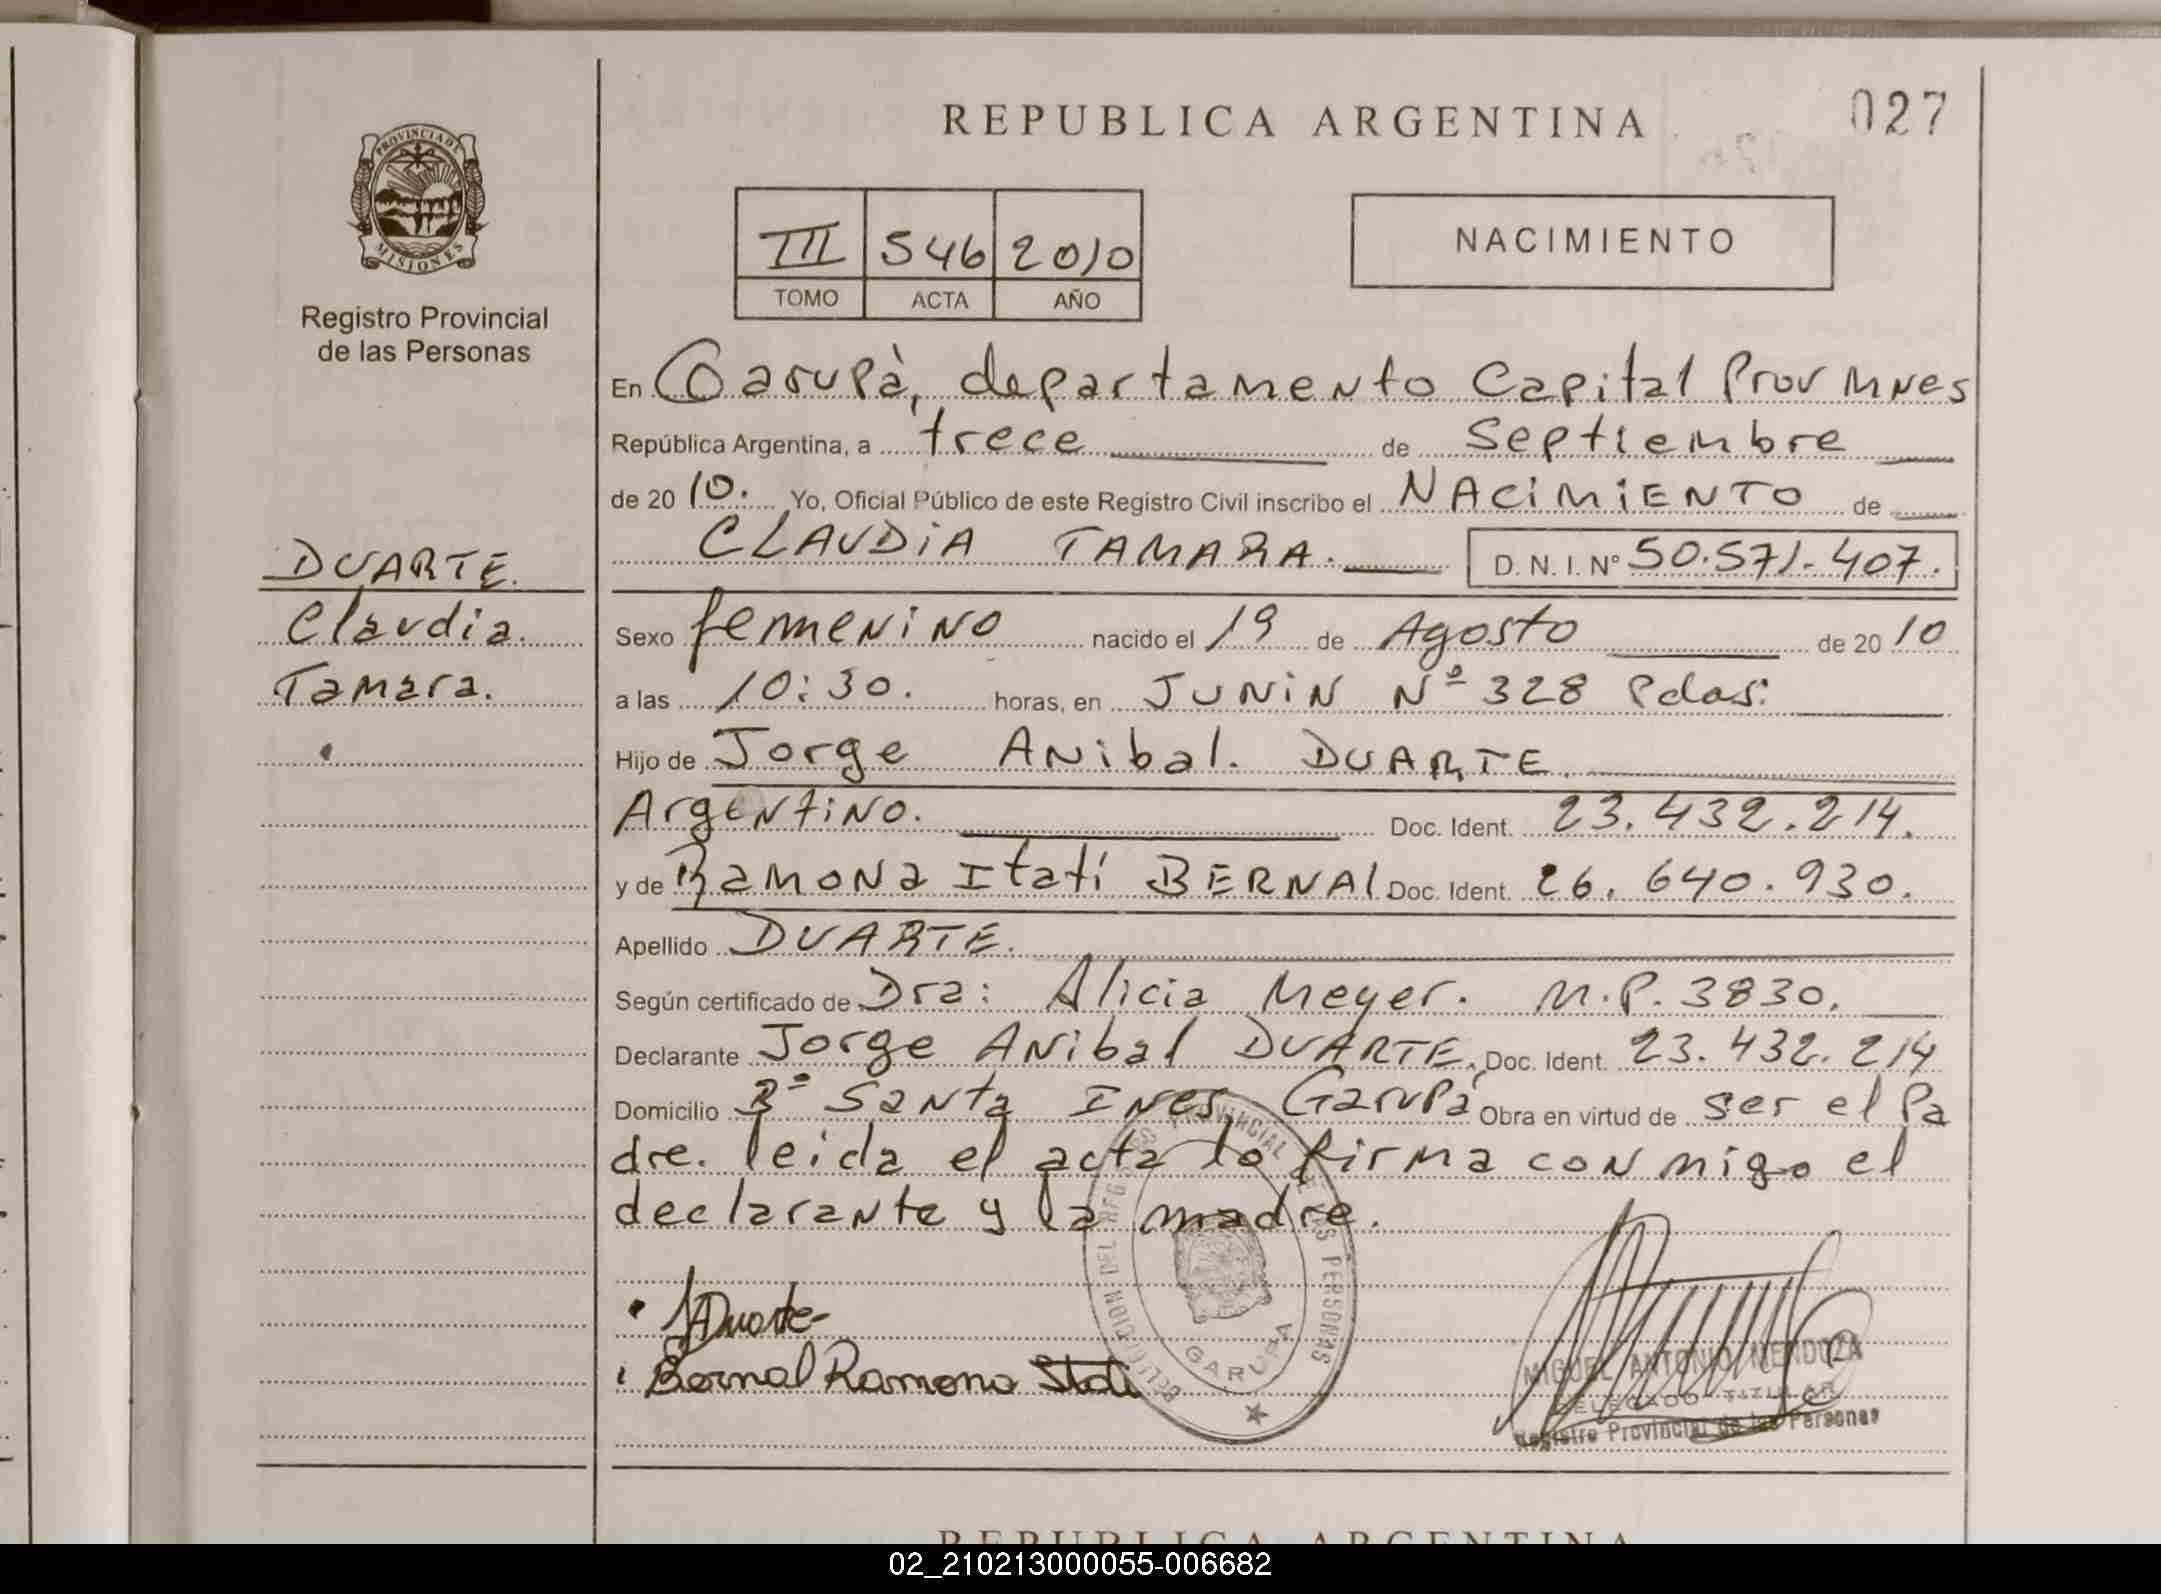 REPUBLICA ARGENTINA
027
PROVINCIA DE
MISIONES
Registro Provincial
de las Personas
III 546 2010
TOMO ACTA AÑO
NACIMIENTO
En Garupà, departamento Capital Prov Mnes
República Argentina, a trece de Septiembre
de 20 10. Yo, Oficial Público de este Registro Civil inscribo el NACIMIENTO de
CLAUDIA TAMARA. D. N. I. Nº 50.571.407.
DUARTE.
Claudia.
Tamara.
Sexo femenino nacido el 19 de Agosto de 20 10
a las 10:30. horas, en JUNIN Nº 328 Pdas:
Hijo de Jorge Anibal. DUARTE.
Argentino. Doc. Ident. 23.432.214.
y de Ramona Itatí BERNAL Doc. Ident. 26.640.930.
Apellido DUARTE.
Según certificado de Dra: Alicia Meyer. M.P. 3830.
Declarante Jorge Anibal DUARTE. Doc. Ident. 23.432.214
Domicilio Bº Santa Ines, Garupá Obra en virtud de ser el Pa
dre. leida el acta la firma conmigo el
declarante y la madre.
JADuarte
Bernal Ramona Itati
DELEGACION DEL REG PROVINCIAL DE LAS PERSONAS
GARUPA
MIGUEL ANTONIO MENDOZA
DELEGADO TITULAR
Registro Provincial de las Personas
REPUBLICA ARGENTINA
02_210213000055-006682